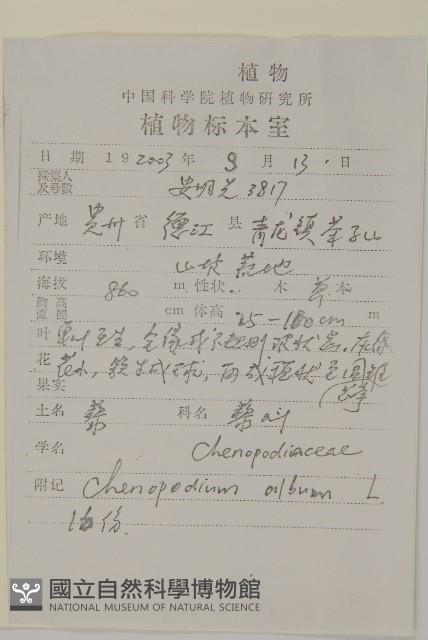 植物
中国科学院植物研究所
植物标本室
日 期 19 2003 年 9 月 13 · 日
採集人及号数 安明先 3817
产地 贵州 省 德江 县 青龙镇
环境 山坡 荒地
海拔 860 m 性状 木 草本
胸高直徑 cm 体高 25-180cm m
叶 单叶互生, 全缘或不规则波状
花 花小, 簇生成球, 再成穗状
果实
土名 藜 科名 藜科
学名 Chenopodiaceae
附记 Chenopodium album L.
份.
國立自然科學博物館
NATIONAL MUSEUM OF NATURAL SCIENCE